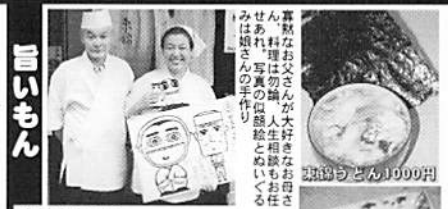 旨いもん
寡黙なお父さんが大好きなお母さ
ん、料理は勿論、人生相談もお任
せあれ。写真の似顔絵とぬいぐる
みは娘さんの手作り
東錦うどん1000円